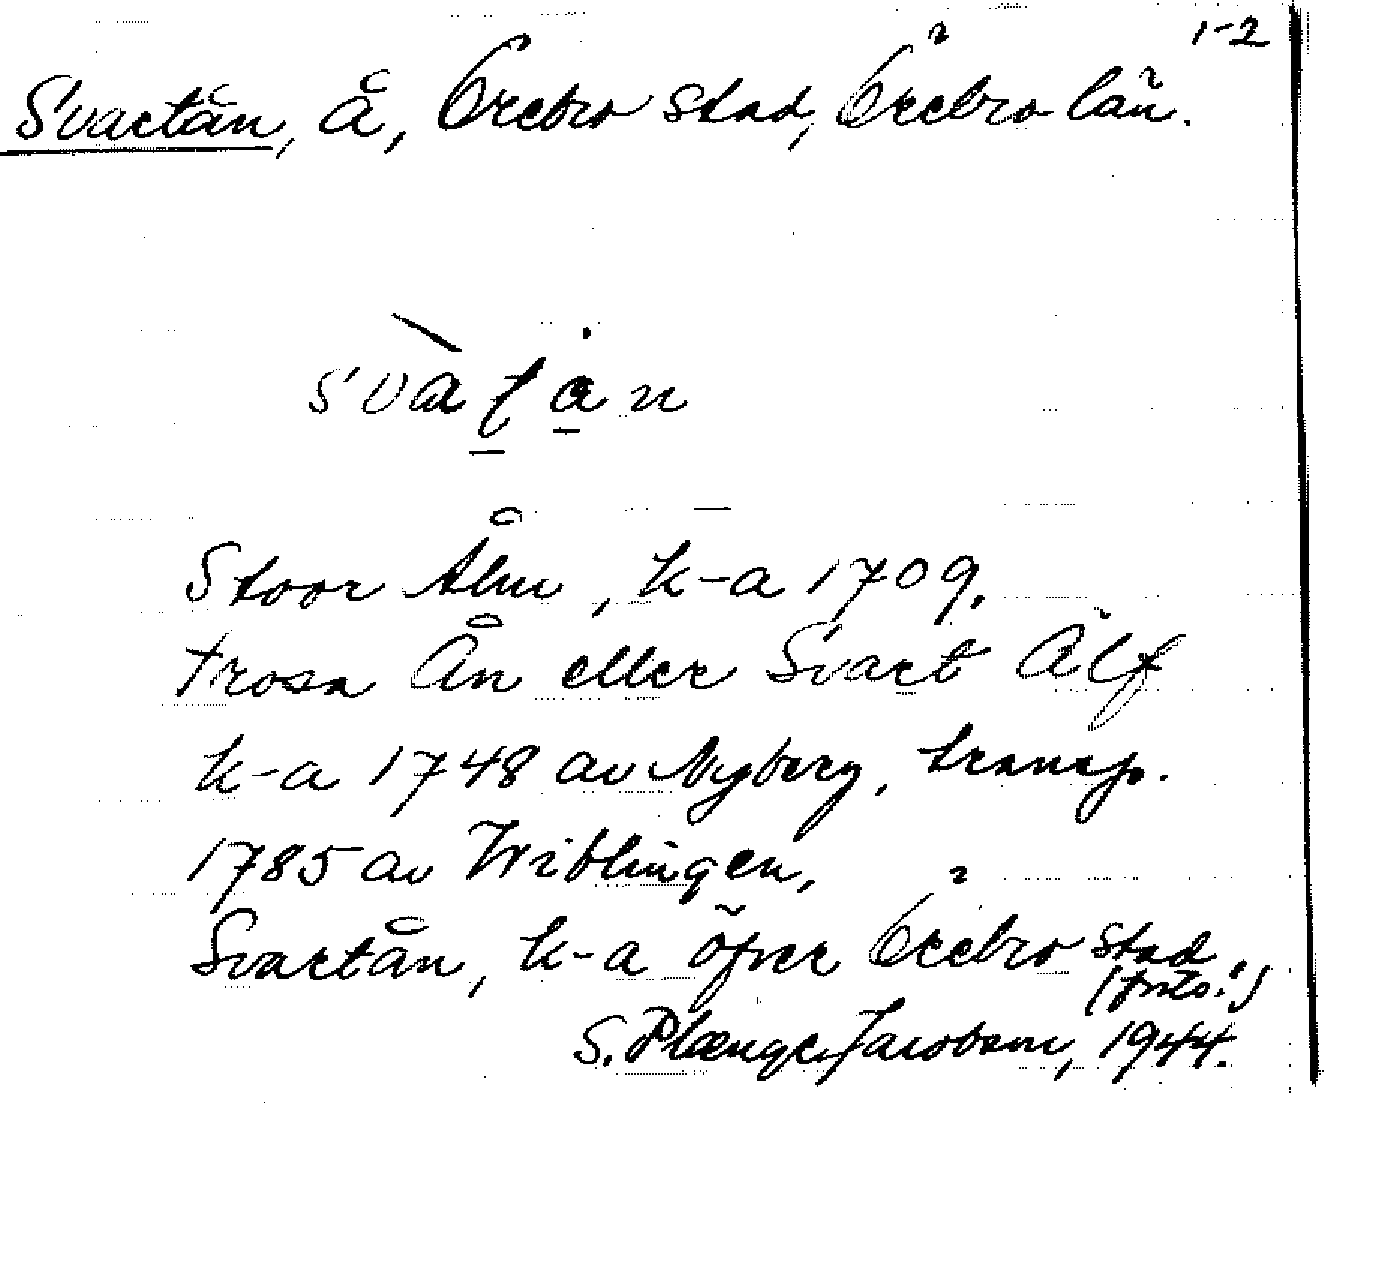 1-2
Svartån, å, Örebro stad, Örebro län.
svatån
Stoor Åhn, k-a 1709.
trosa Ån eller Svart Älf
k-a 1748 av Nyberg, transp.
1785 av Wiblingen,
Svartån, k-a öfver Örebro stad,
(foto!)
S. Plænge Jacobson, 1944.